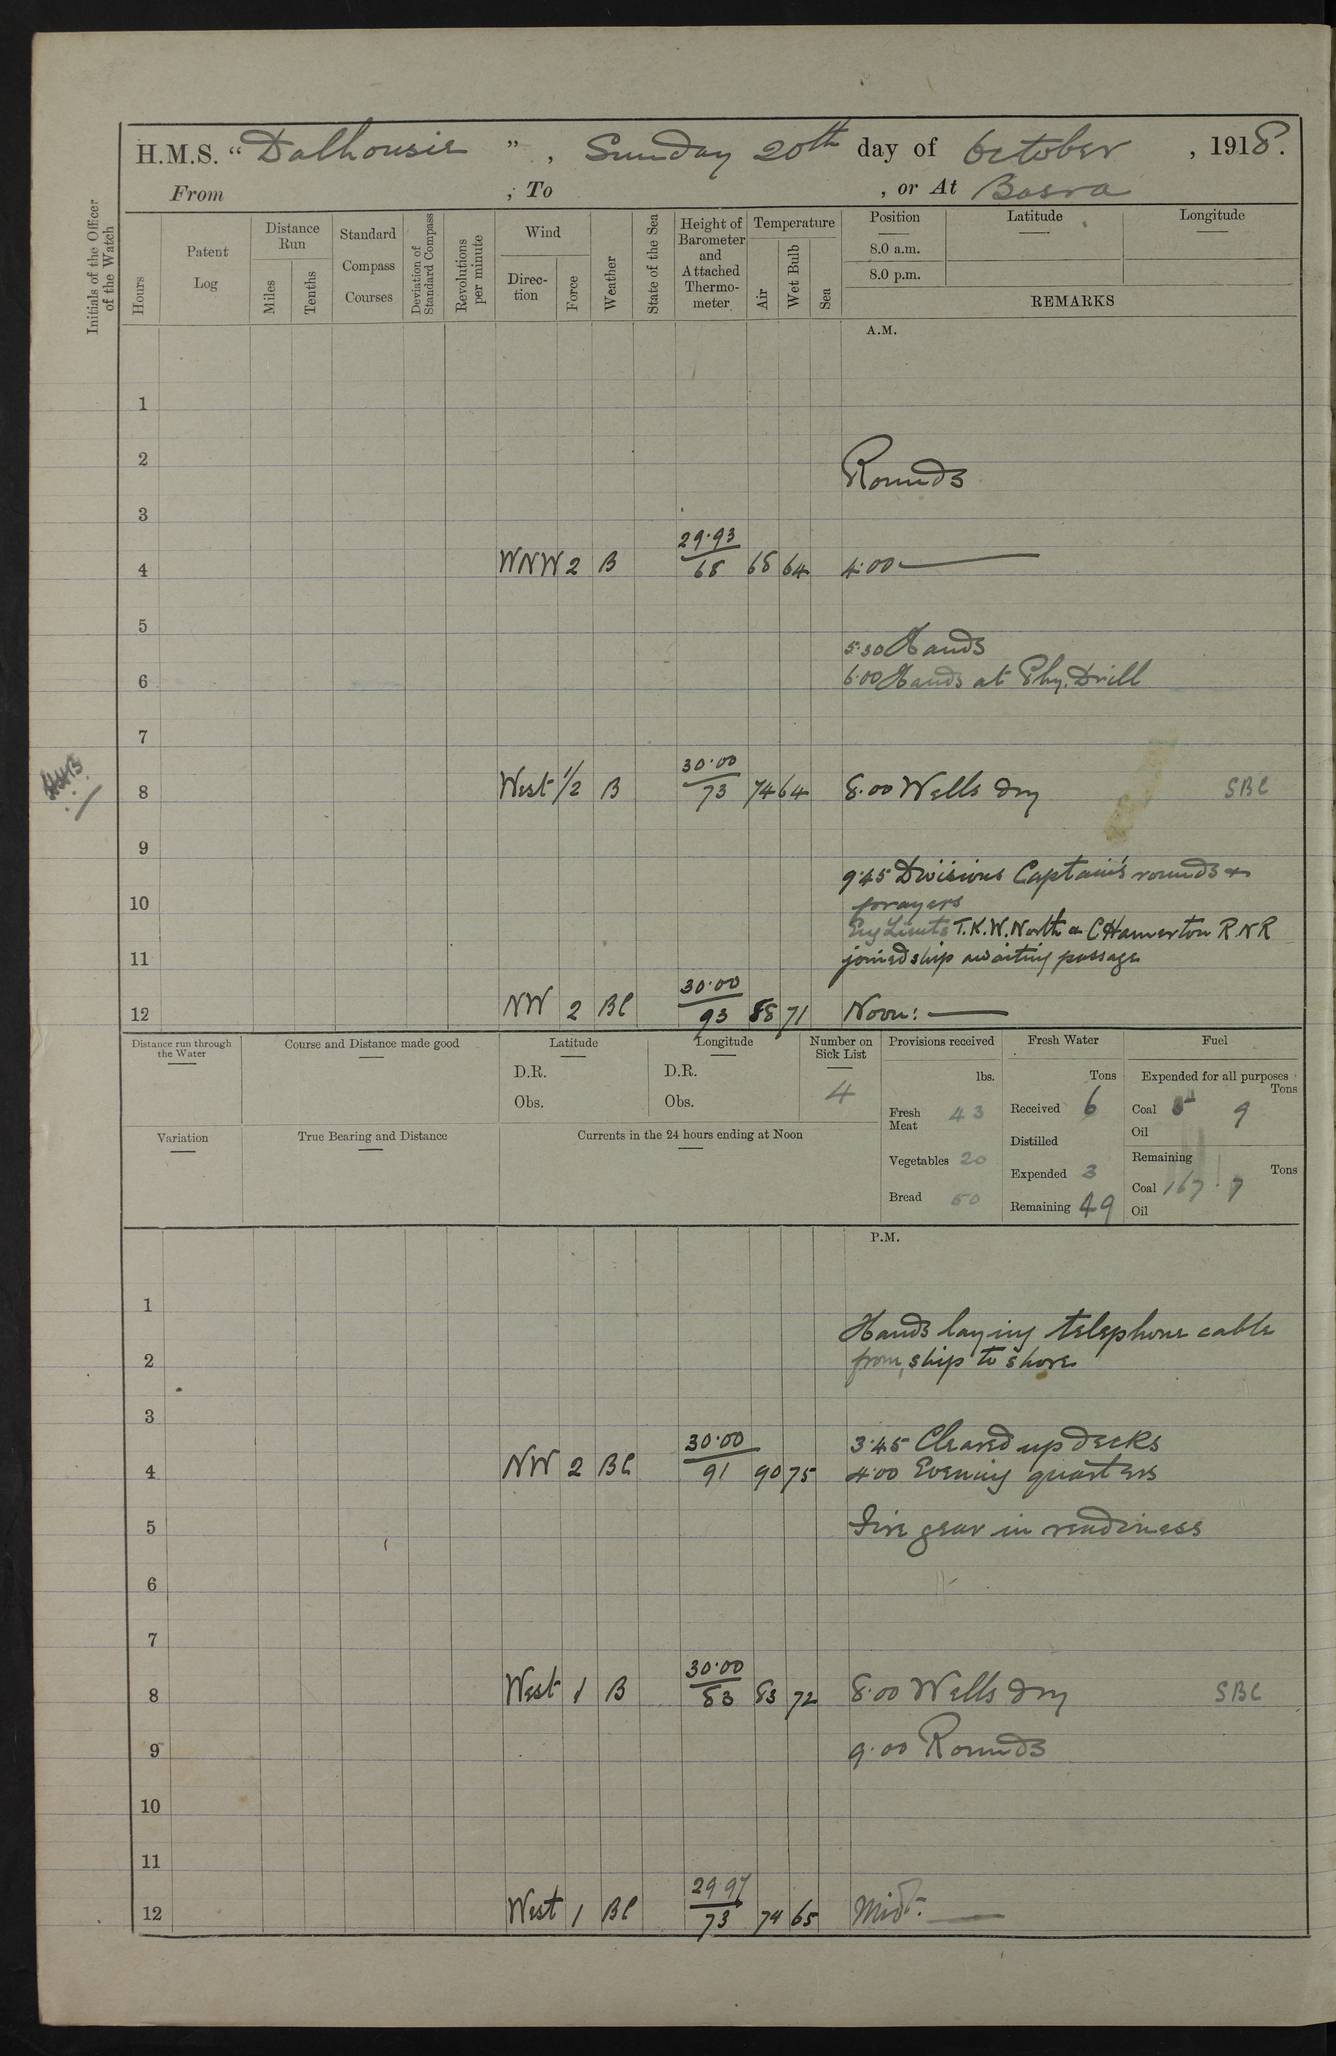 H.M.S. “Dalhousie”, Sunday 20th day of October, 1918.
From ; To , or At Basra
Initials of the Officer of the Watch
Hours
Patent Log
Distance Run
Miles
Tenths
Standard Compass Courses
Deviation of Standard Compass
Revolutions per minute
Wind
Direction
Force
Weather
State of the Sea
Height of Barometer and Attached Thermometer
Temperature
Air
Wet Bulb
Sea
Position
8.0 a.m.
8.0 p.m.
Latitude
Longitude
REMARKS
A.M.
1
2
Rounds
3
29.93
4 WNW 2 B 68 68 64 4.00
5
5.30 Hands
6 6.00 Hands at Phy. Drill
7
30.00
8 West 1/2 B 73 74 64 8.00 Wells dry SBC
9
9.45 Divisions Captain's rounds &
10 prayers
Eng Lieuts T.K.W. North & C Hamerton R N R
11 joined ship awaiting passage
30.00
12 NW 2 BC 93 88 71 Noon:
Distance run through the Water
Course and Distance made good
Latitude
D.R.
Obs.
Longitude
D.R.
Obs.
Number on Sick List
4
Provisions received
lbs.
Fresh Meat 43
Vegetables 20
Bread 50
Fresh Water
Tons
Received 6
Distilled
Expended 3
Remaining 49
Fuel
Expended for all purposes
Tons
Coal 9
Oil
Remaining
Tons
Coal 167 7
Oil
Variation
True Bearing and Distance
Currents in the 24 hours ending at Noon
P.M.
1
Hands laying telephone cable
2 from ship to shore
3
30.00 3.45 Cleared up decks
4 NW 2 BC 91 90 75 4.00 Evening quarters
5 Fire gear in readiness
6
7
30.00
8 West 1 B 83 83 72 8.00 Wells dry SBC
9 9.00 Rounds
10
11
29.97
12 West 1 BC 73 74 65 Midt: